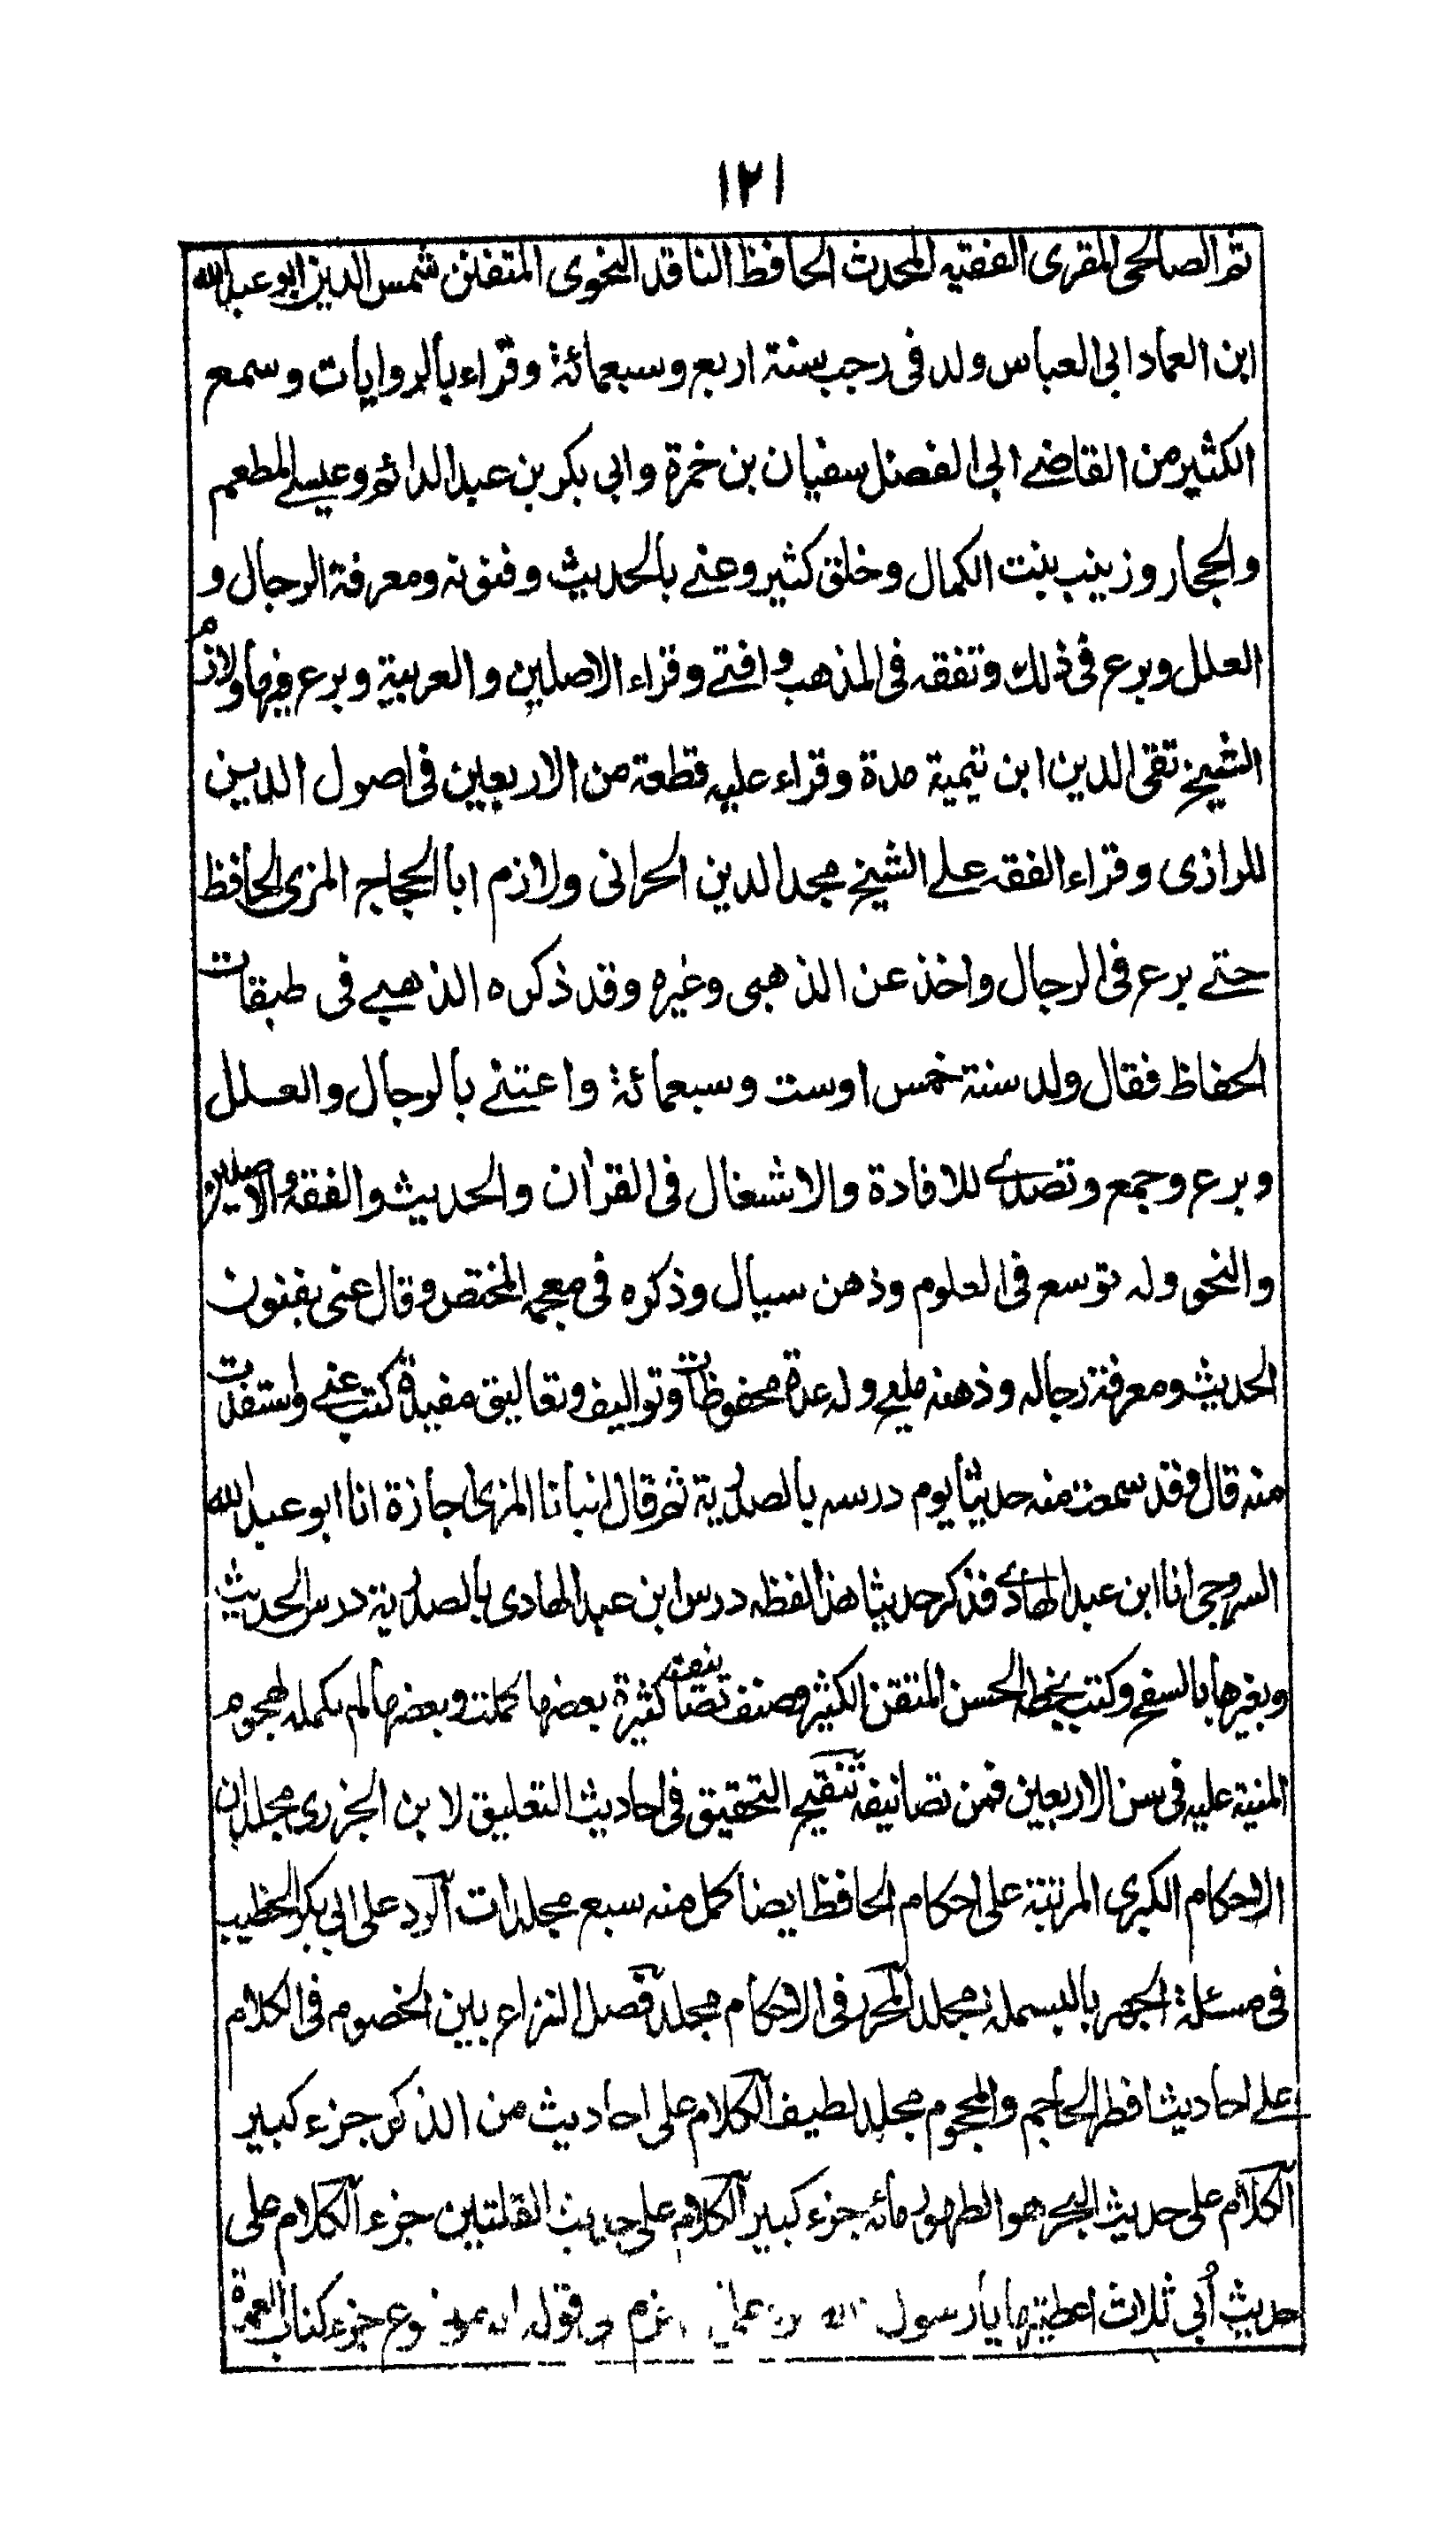 ١٢١
ثم الصالحى المقرى الفقيه المحدث الحافظ الناقد النحوى المتفنن شمس الدين ابو عبد الله
ابن العماد ابى العباس ولد فى رجب سنة اربع وسبعمائة وقراء بالروايات وسمع
الكثير من القاضے ابى الفضل سفيان بن خمرة وابى بكر بن عبد الدائم وعيسے المطعم
والحجار وزينب بنت الكمال وخلق كثير وعنے بالحديث وفنونه ومعرفة الرجال و
العلل وبرع فى ذلك وتفقه فى المذهب وافتے وقراء الاصلين والعربية وبرع فيها ولازم
الشيخ تقى الدين ابن تيمية مدة وقراء عليه قطعة من الاربعين فى اصول الدين
للرازى وقراء الفقه علے الشيخ مجد الدين الحرانى ولازم ابا الحجاج المزى الحافظ
حتے برع فى الرجال واخذ عن الذهبى وغيره وقد ذكره الذهبے فى طبقات
الحفاظ فقال ولد سنة خمس اوست وسبعمائة واعتنے بالرجال والعلل
وبرع وجمع وتصدے للافادة والاشغال فى القرآن والحديث والفقه والاصلين
والنحو وله توسع فى العلوم وذهن سيال وذكره فى معجمه المختص وقال عنى بفنون
الحديث ومعرفة رجاله وذهنه مليح وله عدة محفوظات وتواليف وتعاليق مفيدة كتب عنے واستفدت
منه قال وقد سمعت منه حديثا يوم درسه بالصدرية ثم قال انبانا المزى اجازة انا ابو عبد الله
السروجى انا ابن عبد الهادے فذكر حديثا هذا لفظه درس ابن عبد الهادى بالصدرية درس الحديث
وبغيرها بالسفح وكتب بخطه الحسن المتقن الكثير وصنف تصانيف كثيرة بعضها كملت وبعضها لم يكمله لهجوم
المنية عليه فى سن الاربعين فمن تصانيفه تنقيح التحقيق فى احاديث التعليق لابن الجزرى مجلدان
الاحكام الكبرى المرتبة على احكام الحافظ ايضا كمل منه سبع مجلدات الرد على ابى بكر الخطيب
فى مسئلة الجهر بالبسملة مجلد المحرر فى الاحكام مجلد فصل النزاع بين الخصوم فى الكلام
علے احاديث افطر الحاجم والمحجوم مجلد لطيف الكلام على احاديث من الذكر جزء كبير
الكلام على حديث البحر هو الطهور مائه جزء كبير الكلام على حديث القلتين جزء الكلام على
حديث أبى ثلاث اعطيتها يارسول الله جزء كتاب العمدة